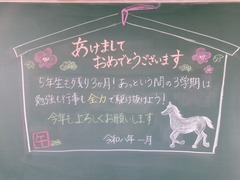 あけまして
おめでとうございます
5年生も残り3か月！あっという間の3学期は
勉強も行事も全力で駆け抜けよう！
今年もよろしくお願いします
令和八年一月
午